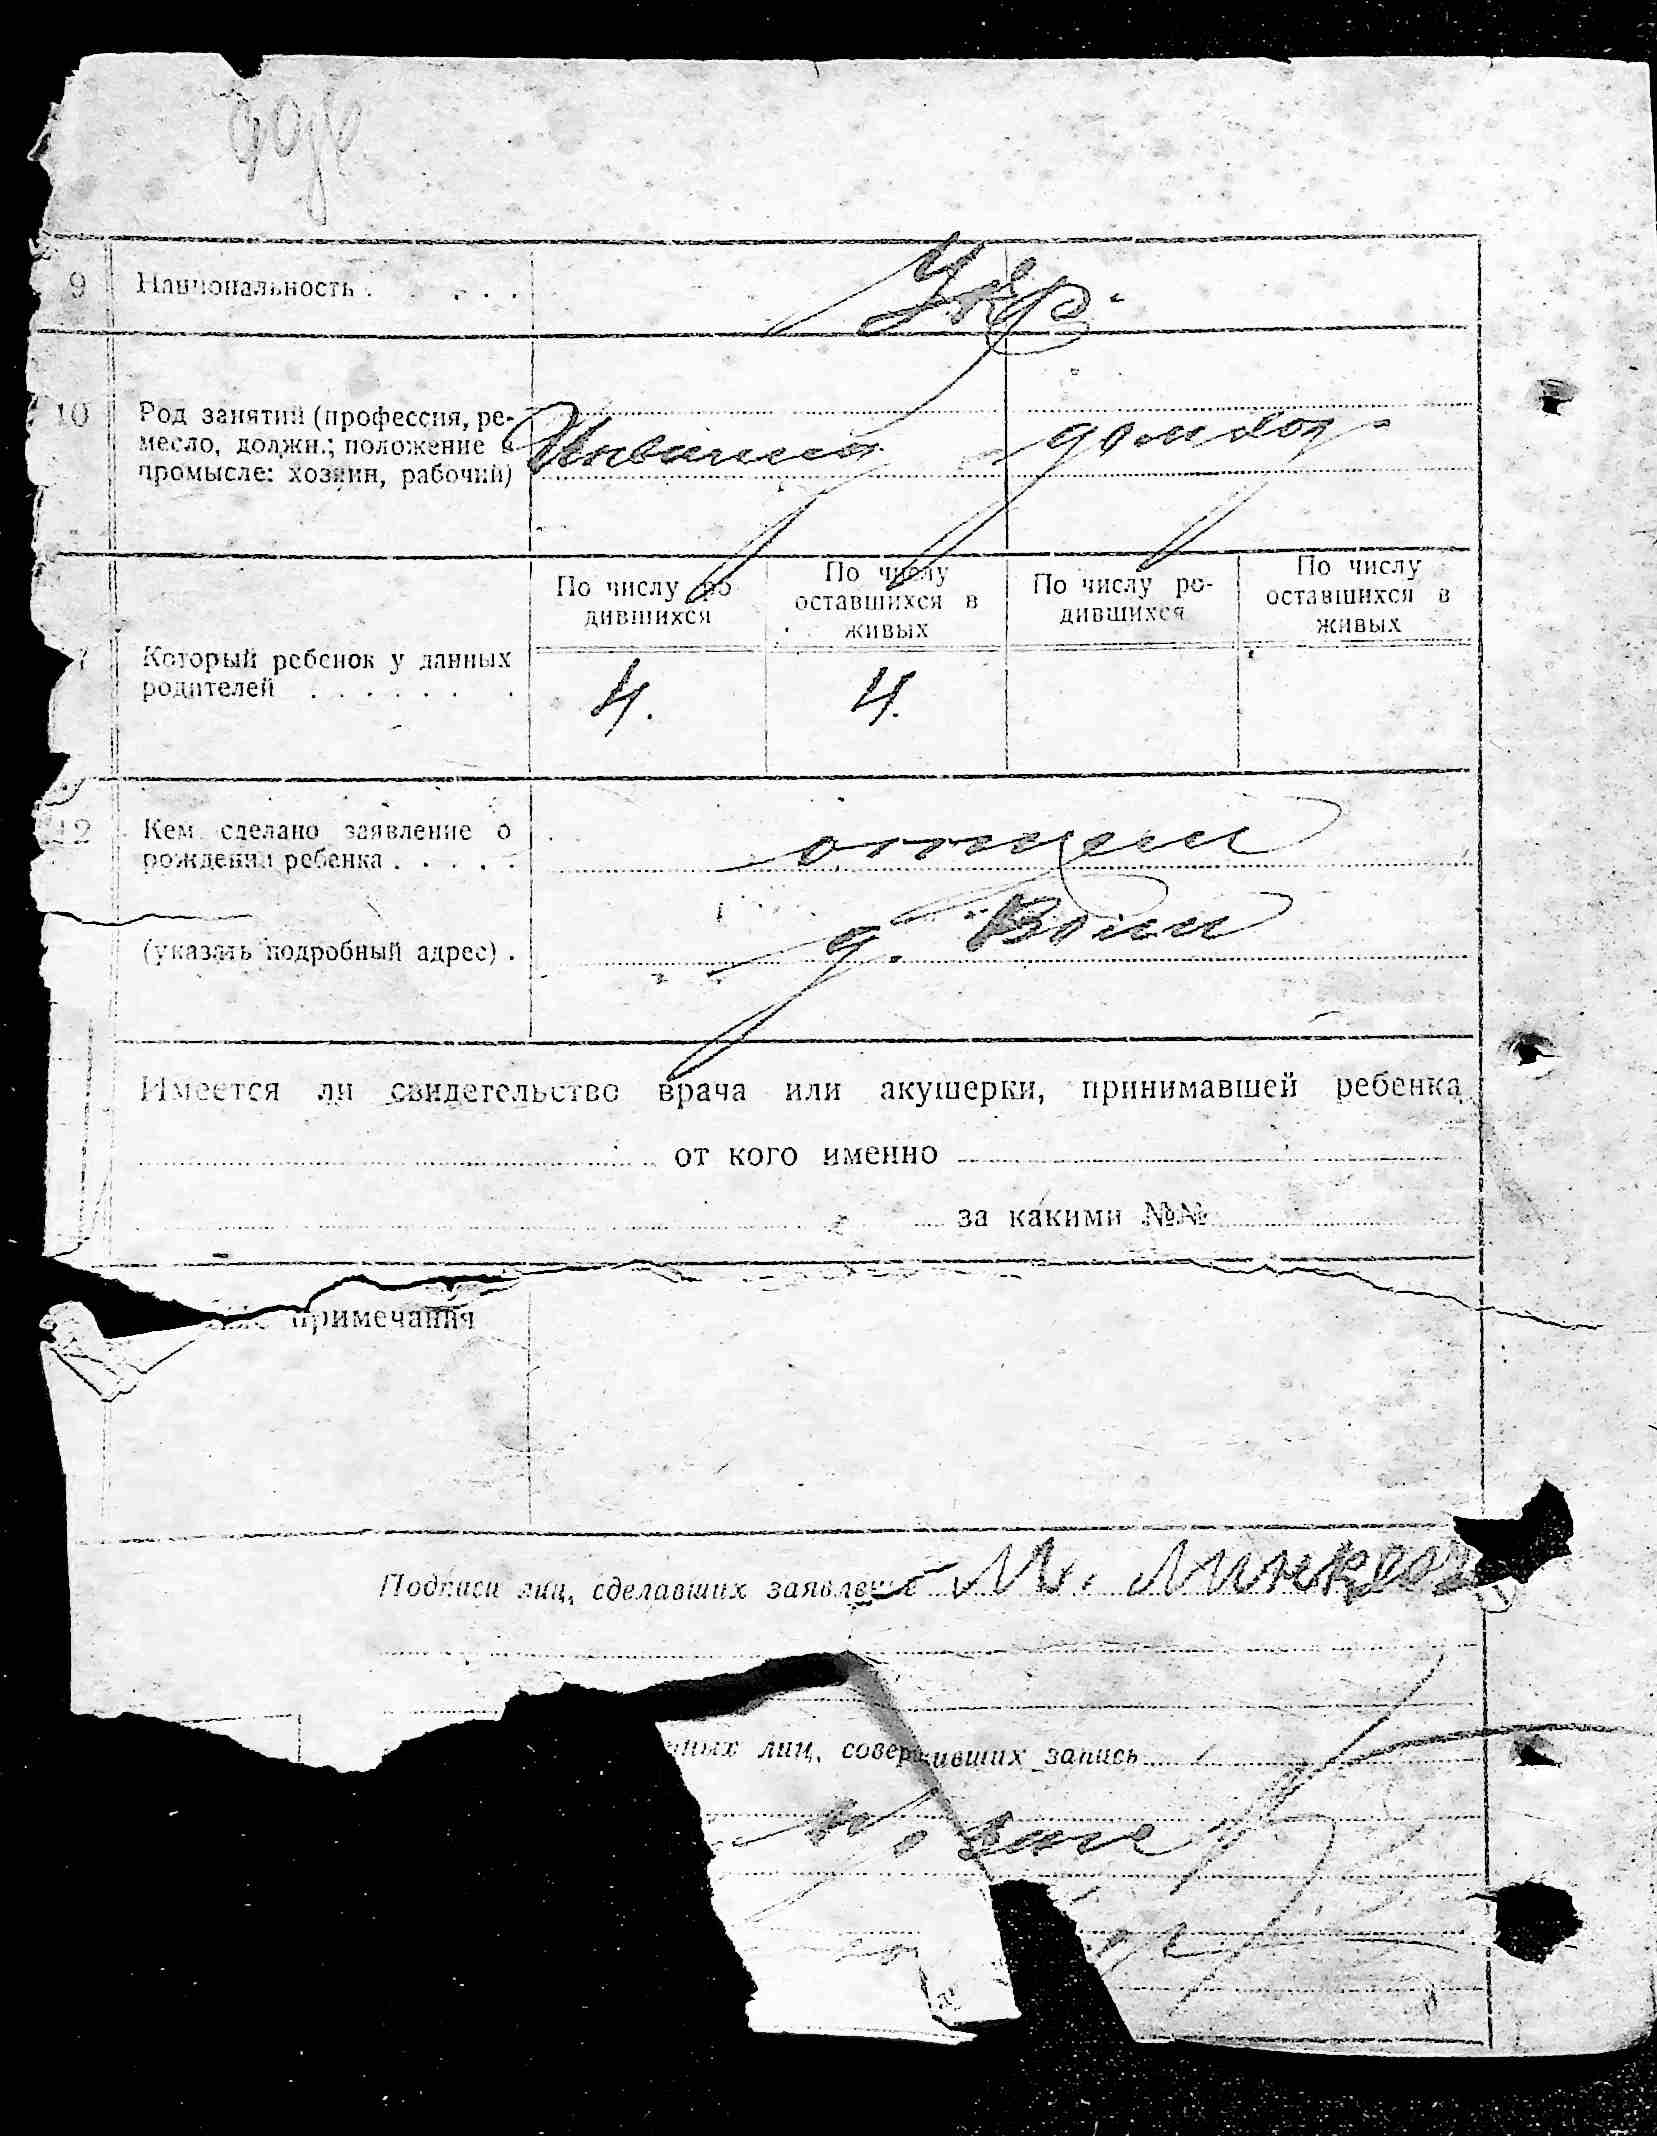 9 Национальность . . . . Укр.
10 Род занятий (профессия, ре-
месло, должн.; положение в
промысле: хозяин, рабочий)
Инвалид домход.
По числу ро-
дившихся
По числу
оставшихся в
живых
По числу ро-
дившихся
По числу
оставшихся в
живых
Который ребенок у данных
родителей . . . . . . .
4. 4.
12 Кем сделано заявление о
рождении ребенка . . . . .
отцем
(указать подробный адрес) .
д.
Имеется ли свидетельство врача или акушерки, принимавшей ребенка
от кого именно
за какими №№
примечания
Подписи лиц, сделавших заявление М.
нных лиц, совершивших запись